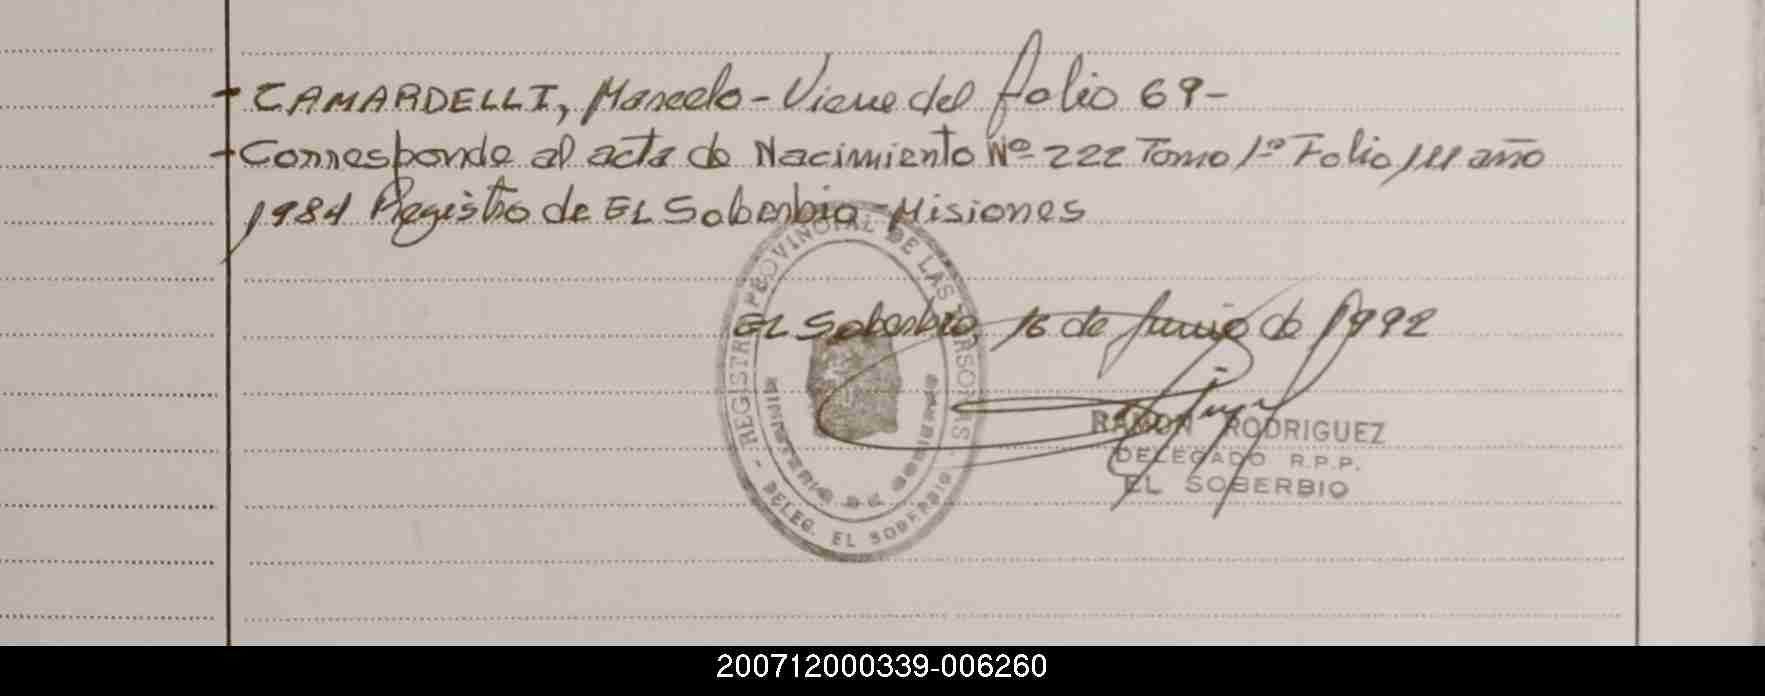 - CAMARDELLI, Marcelo - Viene del folio 69 -
- Corresponde al acta de Nacimiento Nº 222 Tomo 1º Folio 111 año
1984 Registro de EL Soberbio - Misiones
REGISTRO PROVINCIAL DE LAS PERSONAS
EL Soberbio, 16 de Junio de 1992
MINISTERIO DE GOBIERNO
RAMON RODRIGUEZ
DELEGADO R.P.P.
EL SOBERBIO
- DELEG. EL SOBERBIO -
200712000339-006260